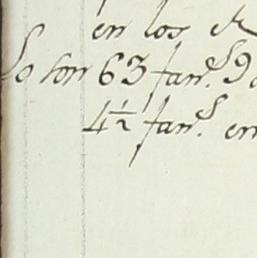 en los
son 63 fan.s 9
4½ fan.s en